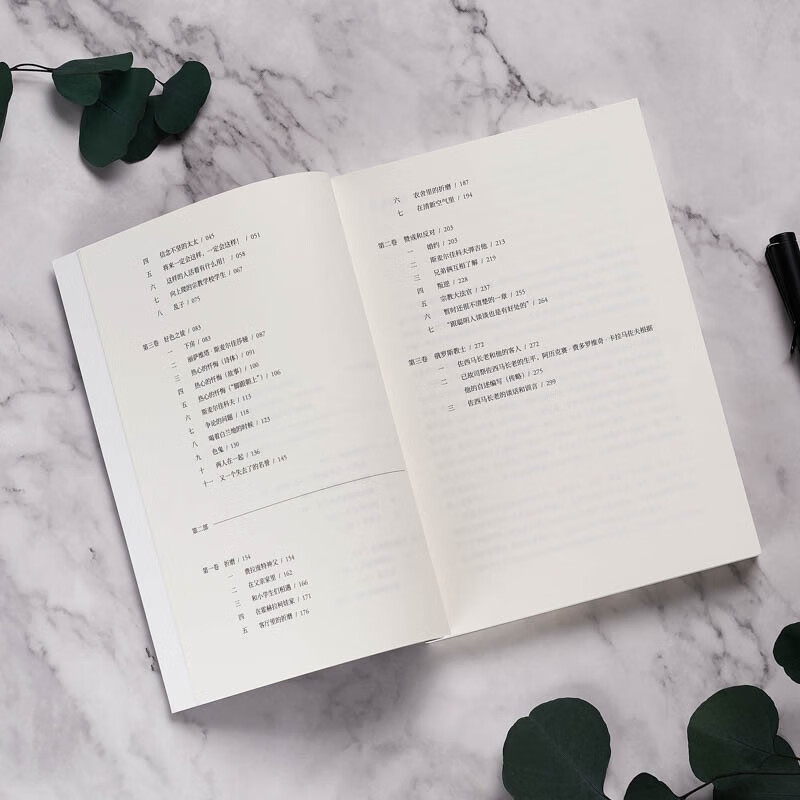 四 信念不坚的太太 / 045
五 将来一定会这样,一定会这样! / 051
六 这样的人活着有什么用! / 058
七 向上爬的宗教学校学生 / 067
八 乱子 / 075
第三卷 好色之徒 / 083
一 下房 / 083
二 丽萨维塔·斯麦尔佳莎娅 / 087
三 热心的忏悔(诗体) / 091
四 热心的忏悔(故事) / 100
五 热心的忏悔(“脚跟朝上”) / 106
六 斯麦尔佳科夫 / 113
七 争论的问题 / 118
八 喝着白兰地的时候 / 123
九 色鬼 / 130
十 两人在一起 / 136
十一 又一个失去了的名誉 / 145
第二部
第一卷 折磨 / 154
一 费拉庞特神父 / 154
二 在父亲家里 / 162
三 和小学生们相遇 / 166
四 在霍赫拉柯娃家 / 171
五 客厅里的折磨 / 176
六 农舍里的折磨 / 187
七 在清新空气里 / 194
第二卷 赞成和反对 / 203
一 婚约 / 203
二 斯麦尔佳科夫弹吉他 / 213
三 兄弟俩互相了解 / 219
四 叛逆 / 228
五 宗教大法官 / 237
六 暂时还很不清楚的一章 / 255
七 “跟聪明人谈谈也是有好处的” / 264
第三卷 俄罗斯教士 / 272
一 佐西马长老和他的客人 / 272
二 已故司祭佐西马长老的生平,阿历克赛·费多罗维奇·卡拉马佐夫根据
他的自述编写(传略) / 275
三 佐西马长老的谈话和训言 / 299